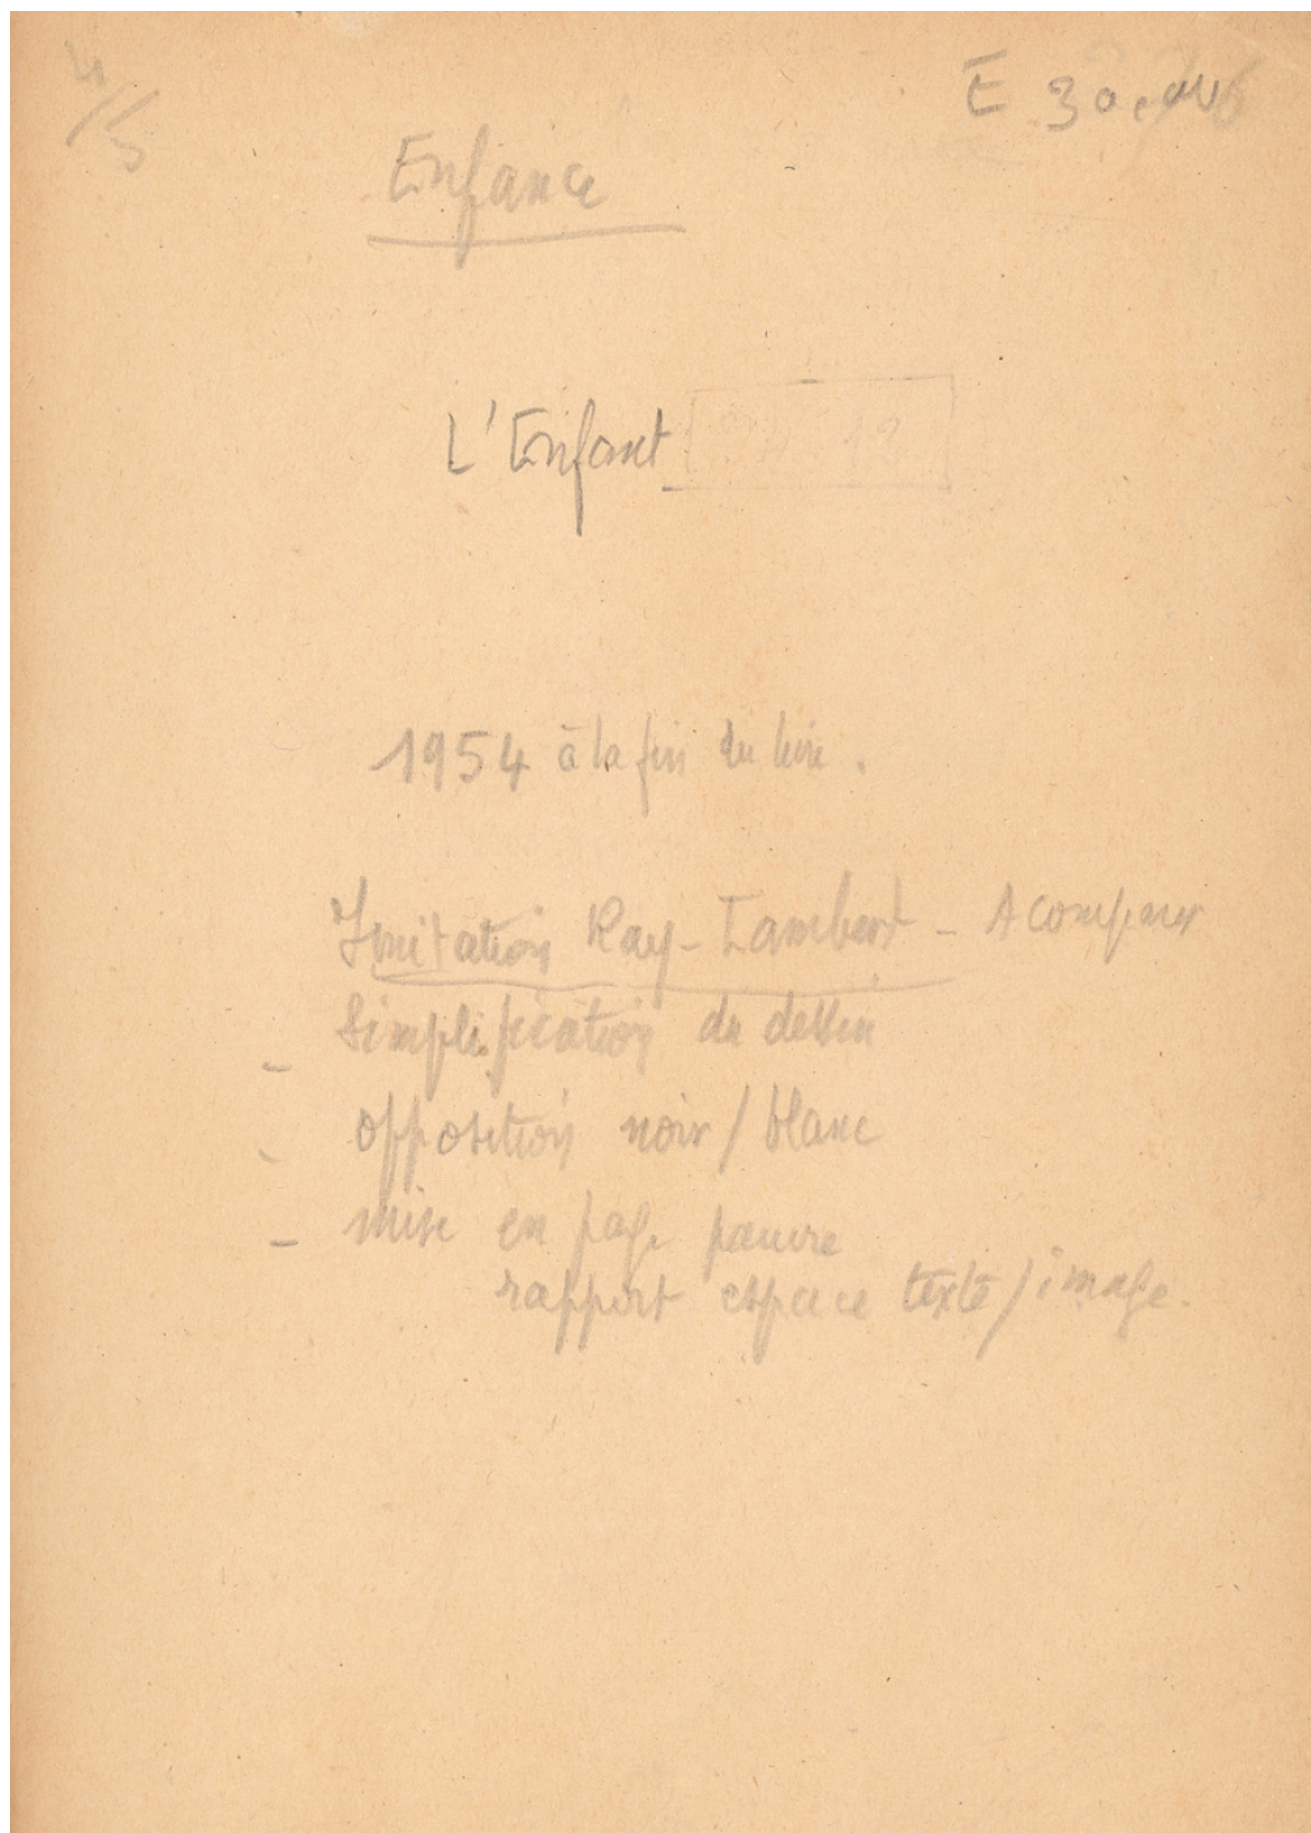 4/5
E 30
Enfance
L'Enfant
1954 à la fin du livre.
Imitation Ray-Lambert - A comparer
- Simplification du dessin
- opposition noir / blanc
- mise en page pauvre
rapport espace texte / image.